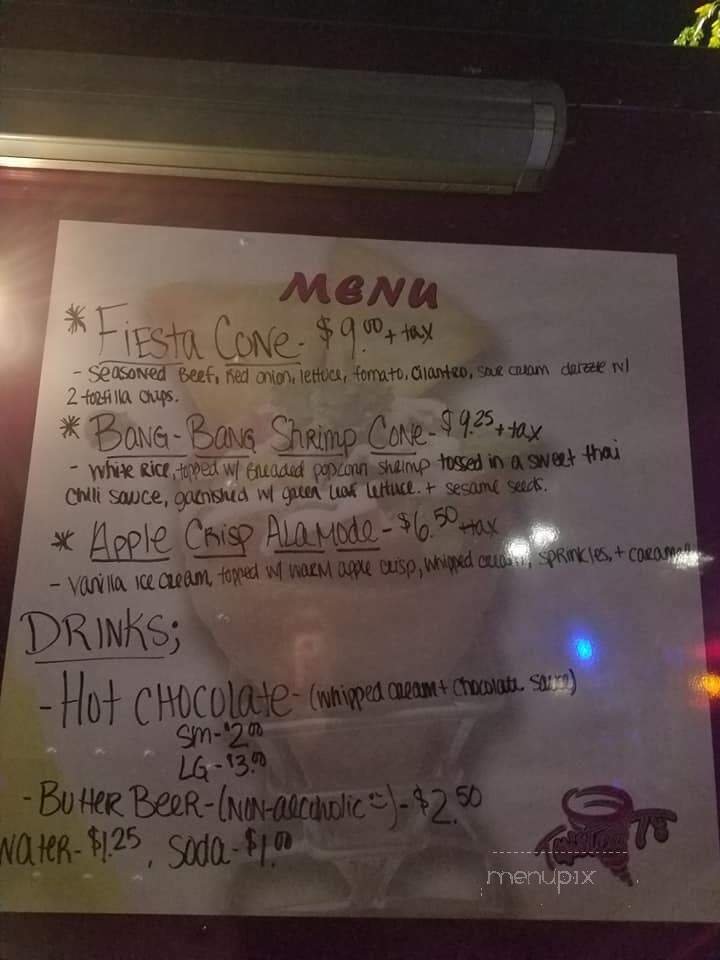 MENU
* FIESTA CONE - $9.00 + tax
- SEASONED BEEF, RED ONION, lettuce, tomato, cilantro, sour cream drizzle w/
2 tortilla chips.
* BANG-BANG SHRIMP CONE - $9.25 + tax
- WHITE RICE, topped w/ BREADED popcorn shrimp tossed in a sweet thai
chili sauce, garnished w/ green leaf lettuce. + sesame seeds.
* Apple CRISP ALAMODE - $6.50 + tax
- VANILLA ICE CREAM, topped w/ WARM apple crisp, whipped cream, SPRINKLES, + caramel
DRINKS;
- Hot CHOCOLATE - (whipped cream + chocolate sauce)
SM - $2.00
LG - $3.00
- BUTTER BEER - (NON-alcoholic) - $2.50
water - $1.25, soda - $1.00
T's
menupix